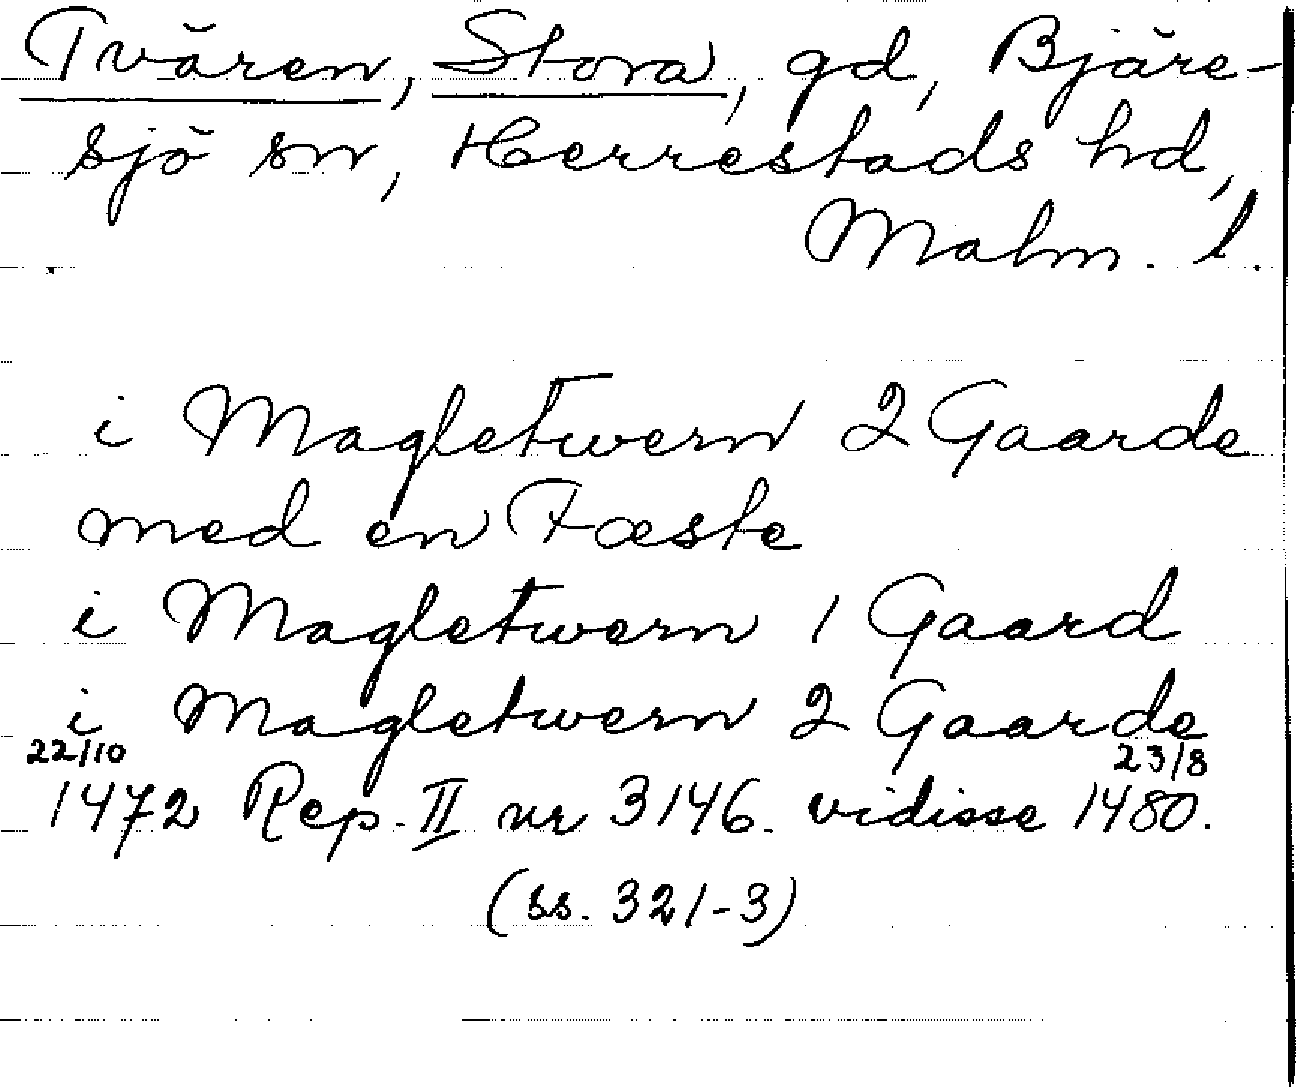 Tvären, Stora, gd, Bjäre-
sjö sn, Herrestads hd,
Malm. l.
i Magletwern 2 Gaarde
med en Fæste
i Magletwern 1 Gaard
i Magletwern 2 Gaarde
22/10 23/8
1472 Rep. II nr 3146. vidisse 1480.
(ss. 321-3)